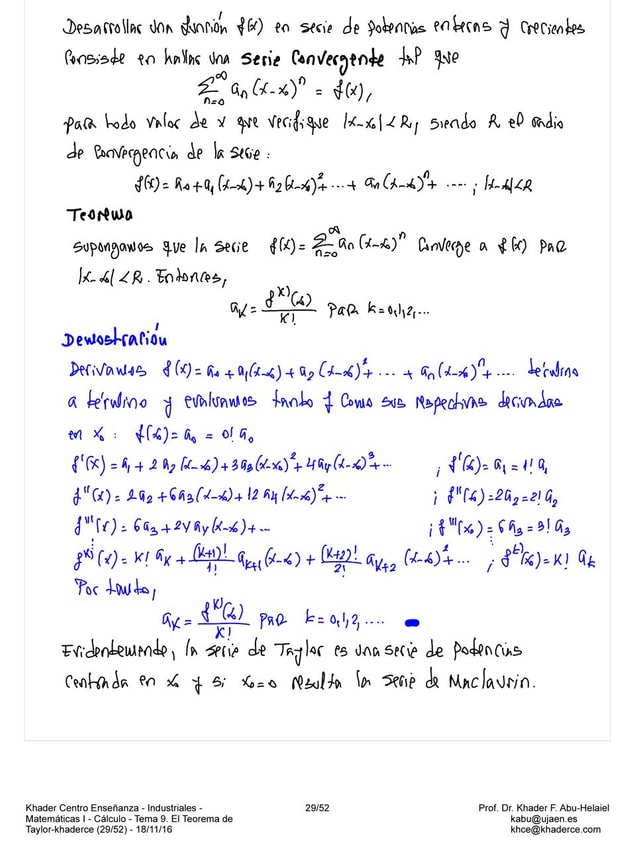 Desarrollar una función f(x) en serie de potencias enteras y crecientes
consiste en hallar una serie convergente tal que
∑_{n=0}^{∞} aₙ(x-x₀)ⁿ = f(x),
para todo valor de x que verifique |x-x₀|<R, siendo R el radio
de convergencia de la serie:
f(x)=a₀+a₁(x-x₀)+a₂(x-x₀)²+...+aₙ(x-x₀)ⁿ+....; |x-x₀|<R
Teorema
supongamos que la serie f(x)=∑_{n=0}^{∞} aₙ(x-x₀)ⁿ converge a f(x) para
|x-x₀|<R. Entonces,
a_K = f^{K)}(x₀)/K! para k=0,1,2,...
Demostración
Derivamos f(x)=a₀+a₁(x-x₀)+a₂(x-x₀)²+...+aₙ(x-x₀)ⁿ+.... término
a término y evaluamos tanto f como sus respectivas derivadas
en x₀: f(x₀)=a₀=0! a₀
f'(x)=a₁+2a₂(x-x₀)+3a₃(x-x₀)²+4a₄(x-x₀)³+... ; f'(x₀)=a₁=1! a₁
f''(x)=2a₂+6a₃(x-x₀)+12a₄(x-x₀)²+... ; f''(x₀)=2a₂=2! a₂
f'''(x)=6a₃+24a₄(x-x₀)+... ; f'''(x₀)=6a₃=3! a₃
f^{K)}(x)=K! a_K+(K+1)!/1! a_{K+1}(x-x₀)+(K+2)!/2! a_{K+2}(x-x₀)²+... ; f^{K)}(x₀)=K! a_K
Por tanto,
a_K = f^{K)}(x₀)/K! para k=0,1,2,....
Evidentemente, la serie de Taylor es una serie de potencias
centrada en x₀ y si x₀=0 resulta la serie de Maclaurin.
Khader Centro Enseñanza - Industriales -
Matemáticas I - Cálculo - Tema 9. El Teorema de
Taylor-khaderce (29/52) - 18/11/16
29/52
Prof. Dr. Khader F. Abu-Helaiel
kabu@ujaen.es
khce@khaderce.com